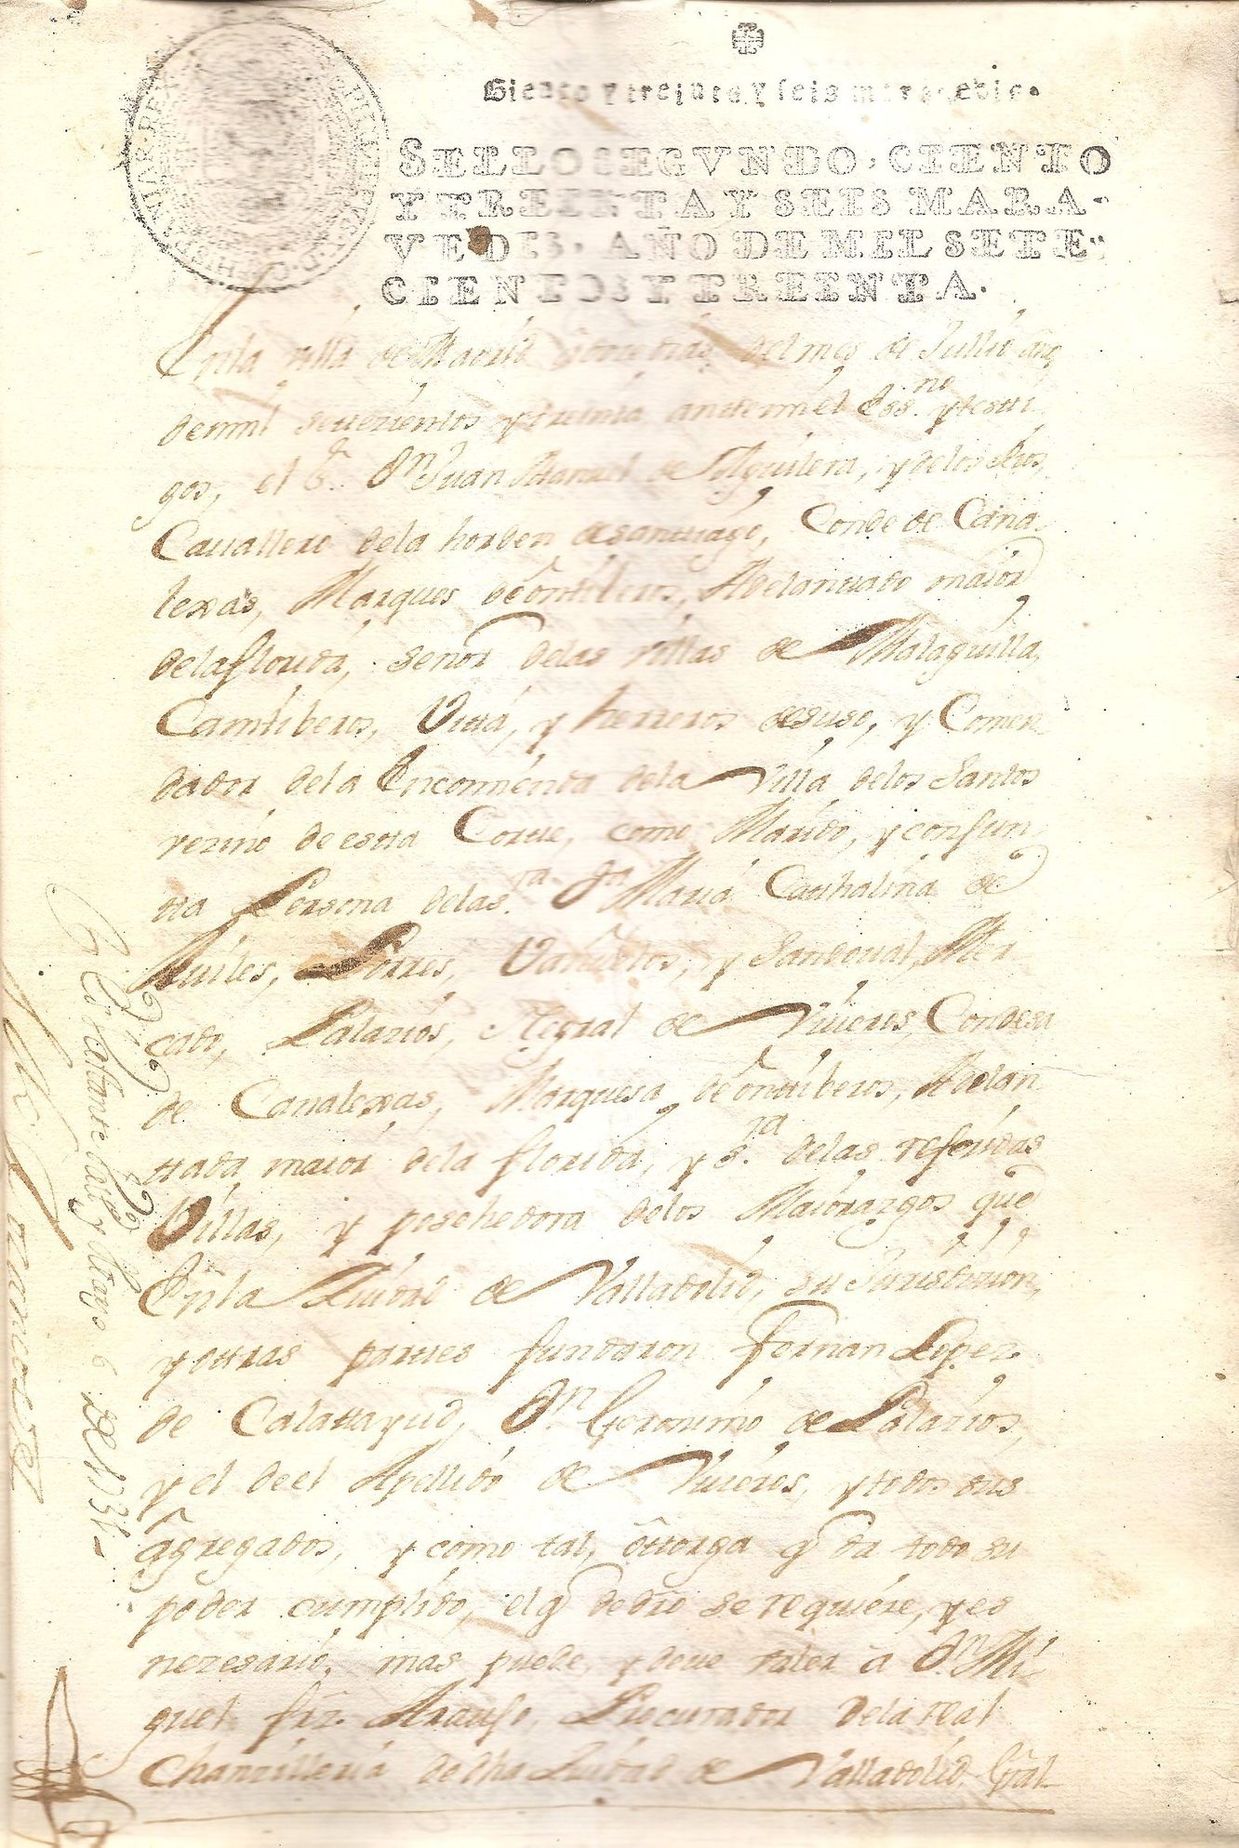 Ciento y treinta y seis maravedis.
SELLO SEGVNDO, CIENTO
Y TREINTA Y SEIS MARA-
VEDIS. AÑO DE MIL SETE-
CIENTOS Y TREINTA.
HISPANIAR REX
Enla villa de Madrid dias del mes de Jullio año
demill settezientos y treinta antte mi el ess.no y testti
gos, el S.r Dn Juan Manuel de Aguilera, y delos Rios,
Cauallero dela horden de santtiago, Conde de Cana
lexas, Marques de Conttiberos, Adelanttado maior
dela florida, señor delas villas de Malaguilla,
Canttiberos, Vitta, y herreros de suso, y Comen
dador dela Encomienda dela Villa delos Santos
vezino de estta Cortte, como Marido, y conjun
tta Persona dela s.ra Da Maria Catthalina de
Auiles, Porres, Vañuelos, y Sandoual, Mer
cado, Palazios, Megral de Viueros, Condesa
de Canalexas, Marquesa de Conttiberos, Adelan
ttada maior dela florida, y s.ra delas referidas
Villas, y poschedora delos Maiorazgos que
Enla Ziudad de Valladolid, su Jurisdizion,
y ottras parttes fundaron Fernan Lopez
de Calattayud, Dn Geronimo de Palazios,
y el de el Apellido de Viueros, y todos sus
agregados, y como tal, ottorga q da todo su
poder cumplido, el q de dro se requiere, y es
nezesario, mas puede, y deue valer a Dn Mi
guel frz Araujo Procurador dela real
Chanzilleria de dha Ziudad de Valladolid Gral